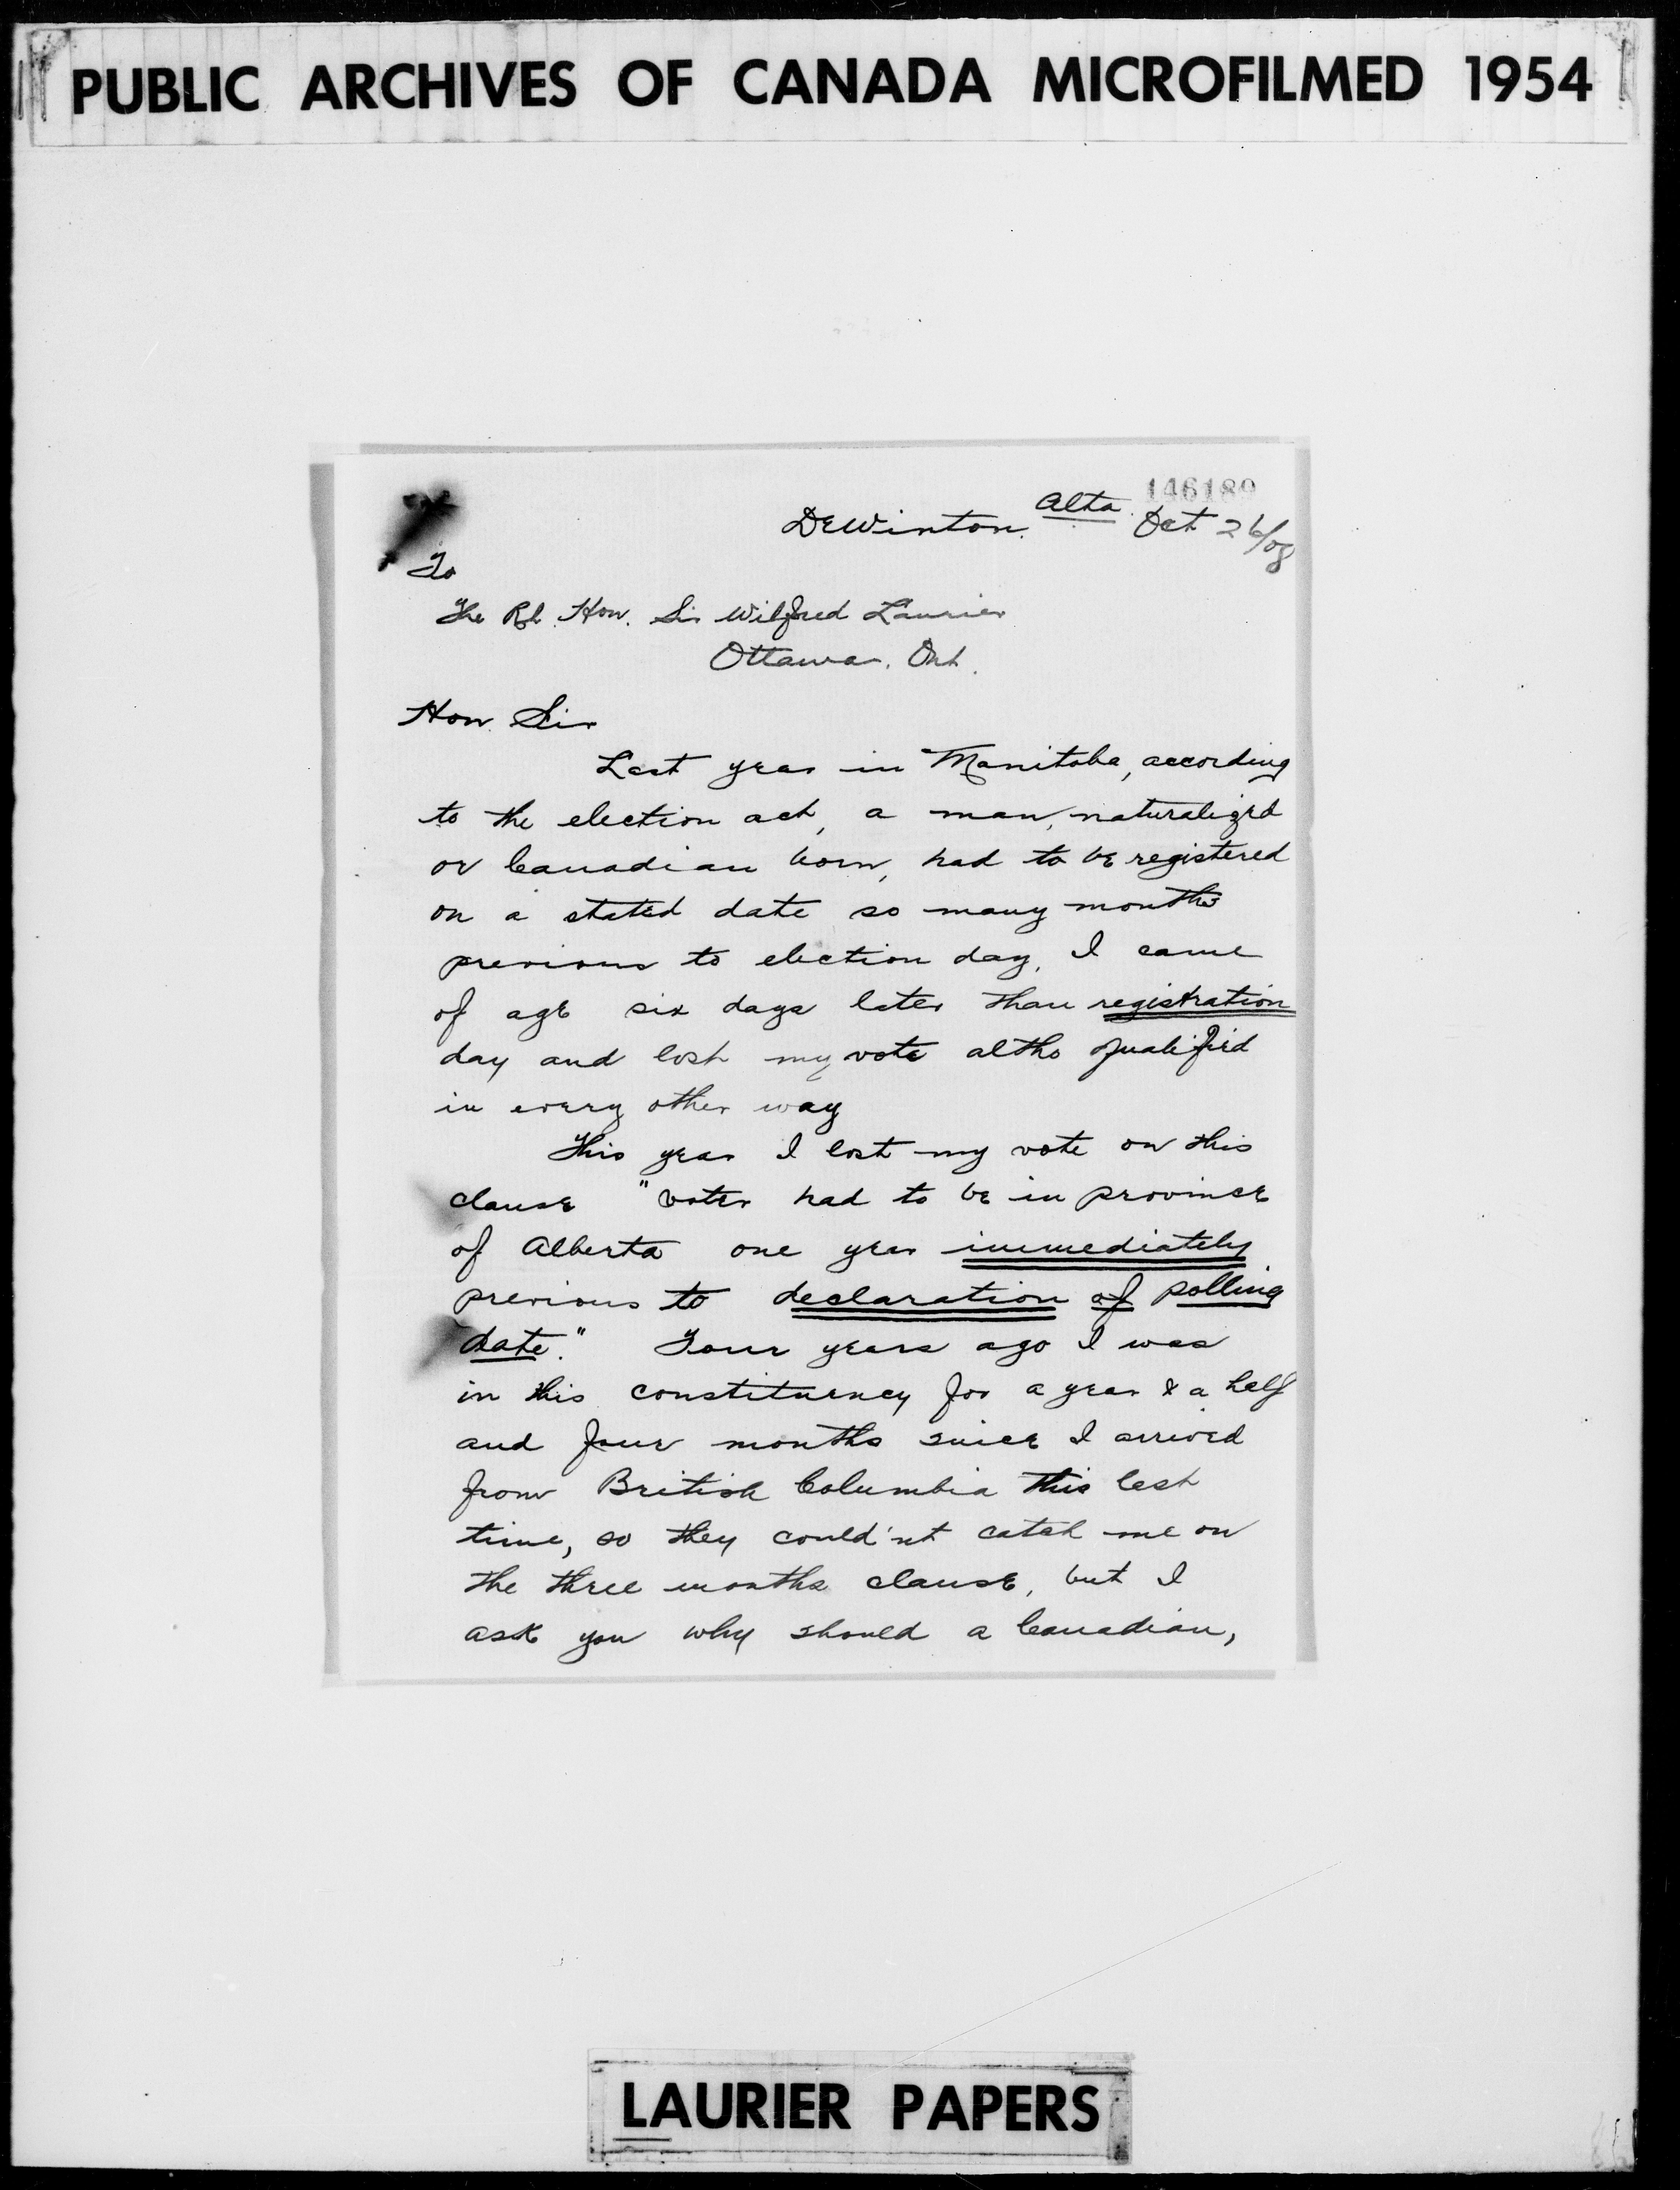 PUBLIC ARCHIVES OF CANADA MICROFILMED 1954
146189
DeWinton. Alta. Oct 26/08
To
The Rt. Hon. Sir Wilfred Laurier
Ottawa. Ont.
Hon. Sir
Last year in Manitoba, according
to the election act, a man, naturalized
or Canadian born, had to be registered
on a stated date so many months
previous to election day, I came
of age six days later than registration
day and lost my vote altho qualified
in every other way
This year I lost my vote on this
clause "voter had to be in province
of Alberta one year immediately
previous to declaration of polling
date." Four years ago I was
in this constituency for a year & a half
and four months since I arrived
from British Columbia this last
time, so they could'nt catch me on
the three months clause, but I
ask you why should a Canadian,
LAURIER PAPERS